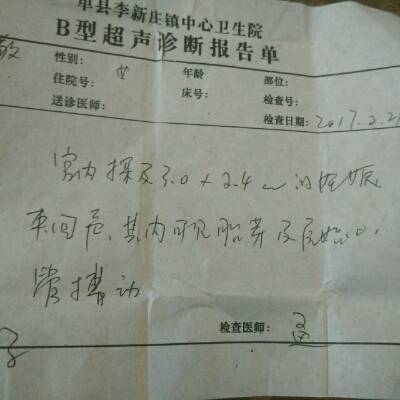 单县李新庄镇中心卫生院
B型超声诊断报告单
敬 性别: 女 年龄 部位:
住院号: 床号: 检查号:
送诊医师: 检查日期: 2017.2.21
宫内探及3.0×2.4 的妊娠
其内可见胎芽及原始心
管搏动
检查医师: